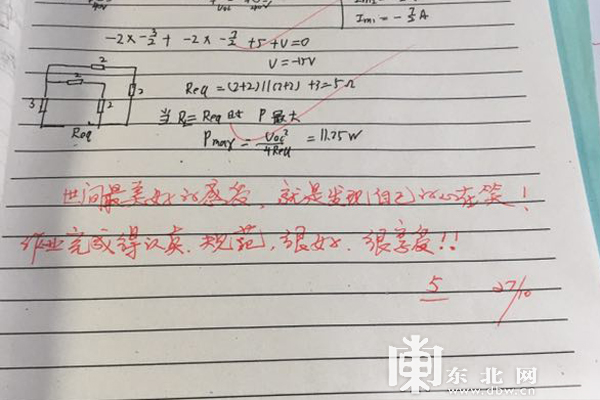 Im₁ = - 7/2 A
-2×-3/2 + -2×-7/2 +5+V=0
V=-15V
2
2
2
3
2
Req
Req=(2+2)||(2+2) +3=5Ω
当 R=Req时 P最大
Pmax = Voc²/4Req = 11.25W
世间最美好的感受,就是发现自己的心在笑!
作业完成得认真、规范,很好、很享受!!
5 27/10
东北网
www.dbw.cn